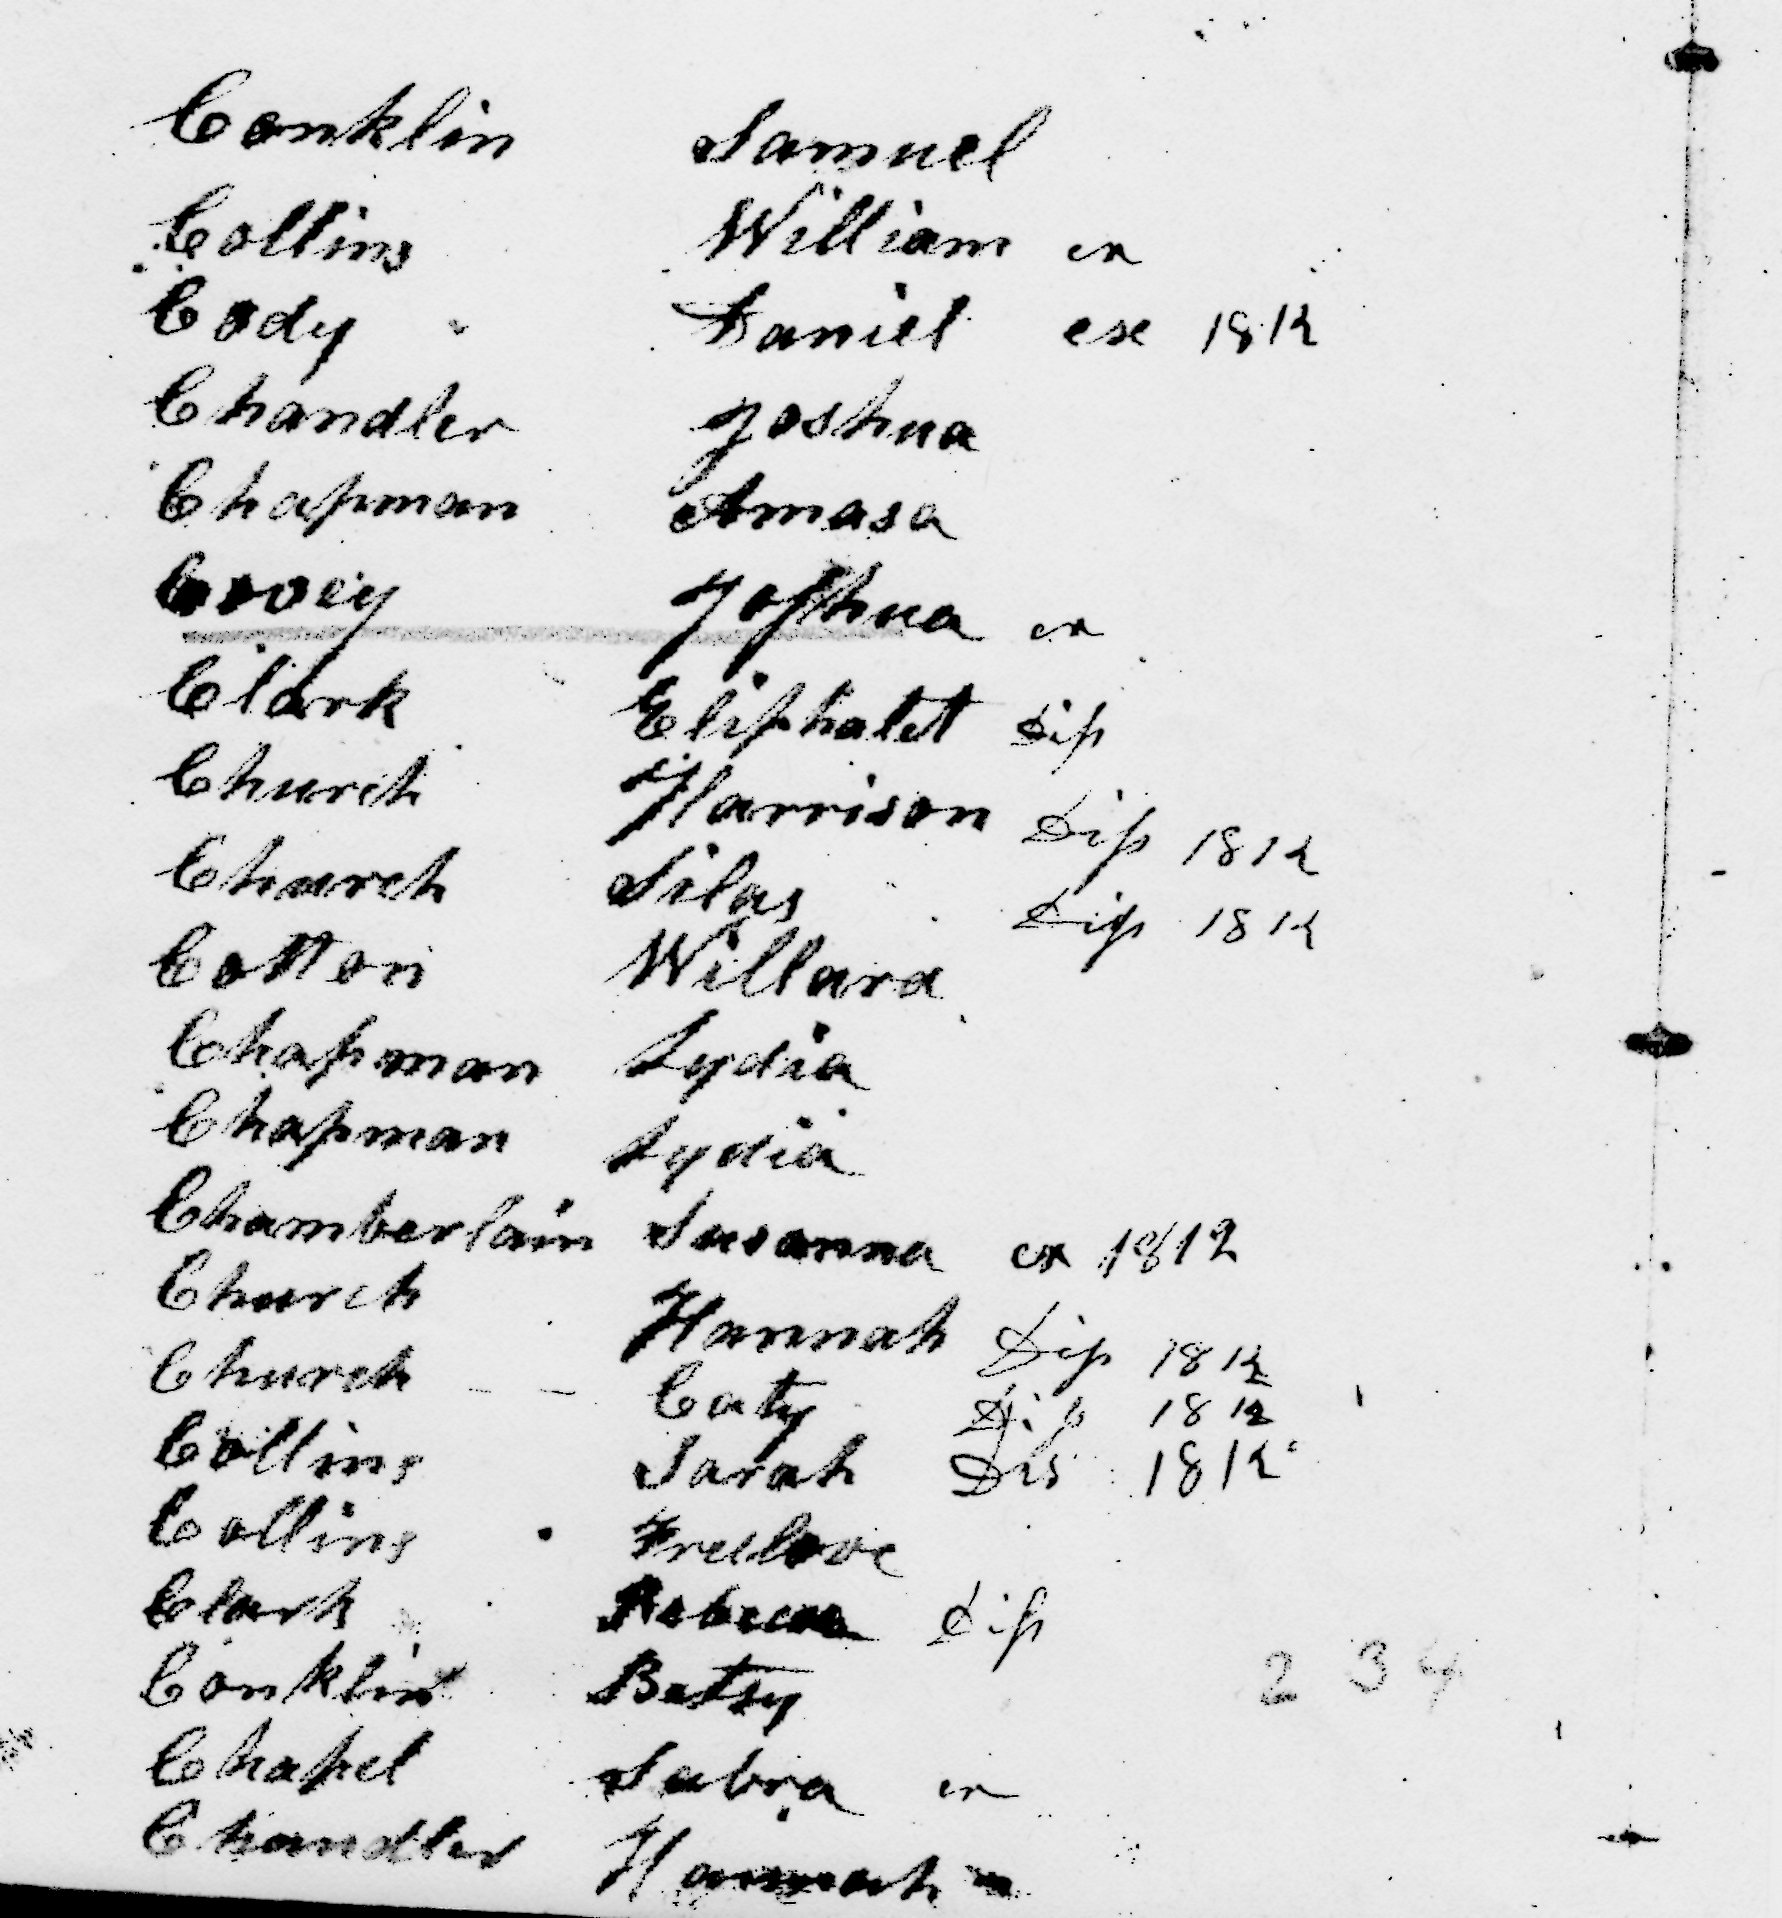 Conklin Samuel
Collins William ex
Cody Daniel exc 1812
Chandler Joshua
Chapman Amasa
Covey Joshua ex
Clark Eliphalet Dis
Church Harrison Dis 1812
Church Silas Dis 1812
Cotton Willard
Chapman Lydia
Chapman Lydia
Chamberlain Susanna ex 1812
Church Hannah Dis 1812
Church Caty Dis 1812
Collins Sarah Dis 1812
Collins Freelove
Clark Rebecca Dis
Conklin Betsy
234
Chapel Sabra ex
Chandler Hannah